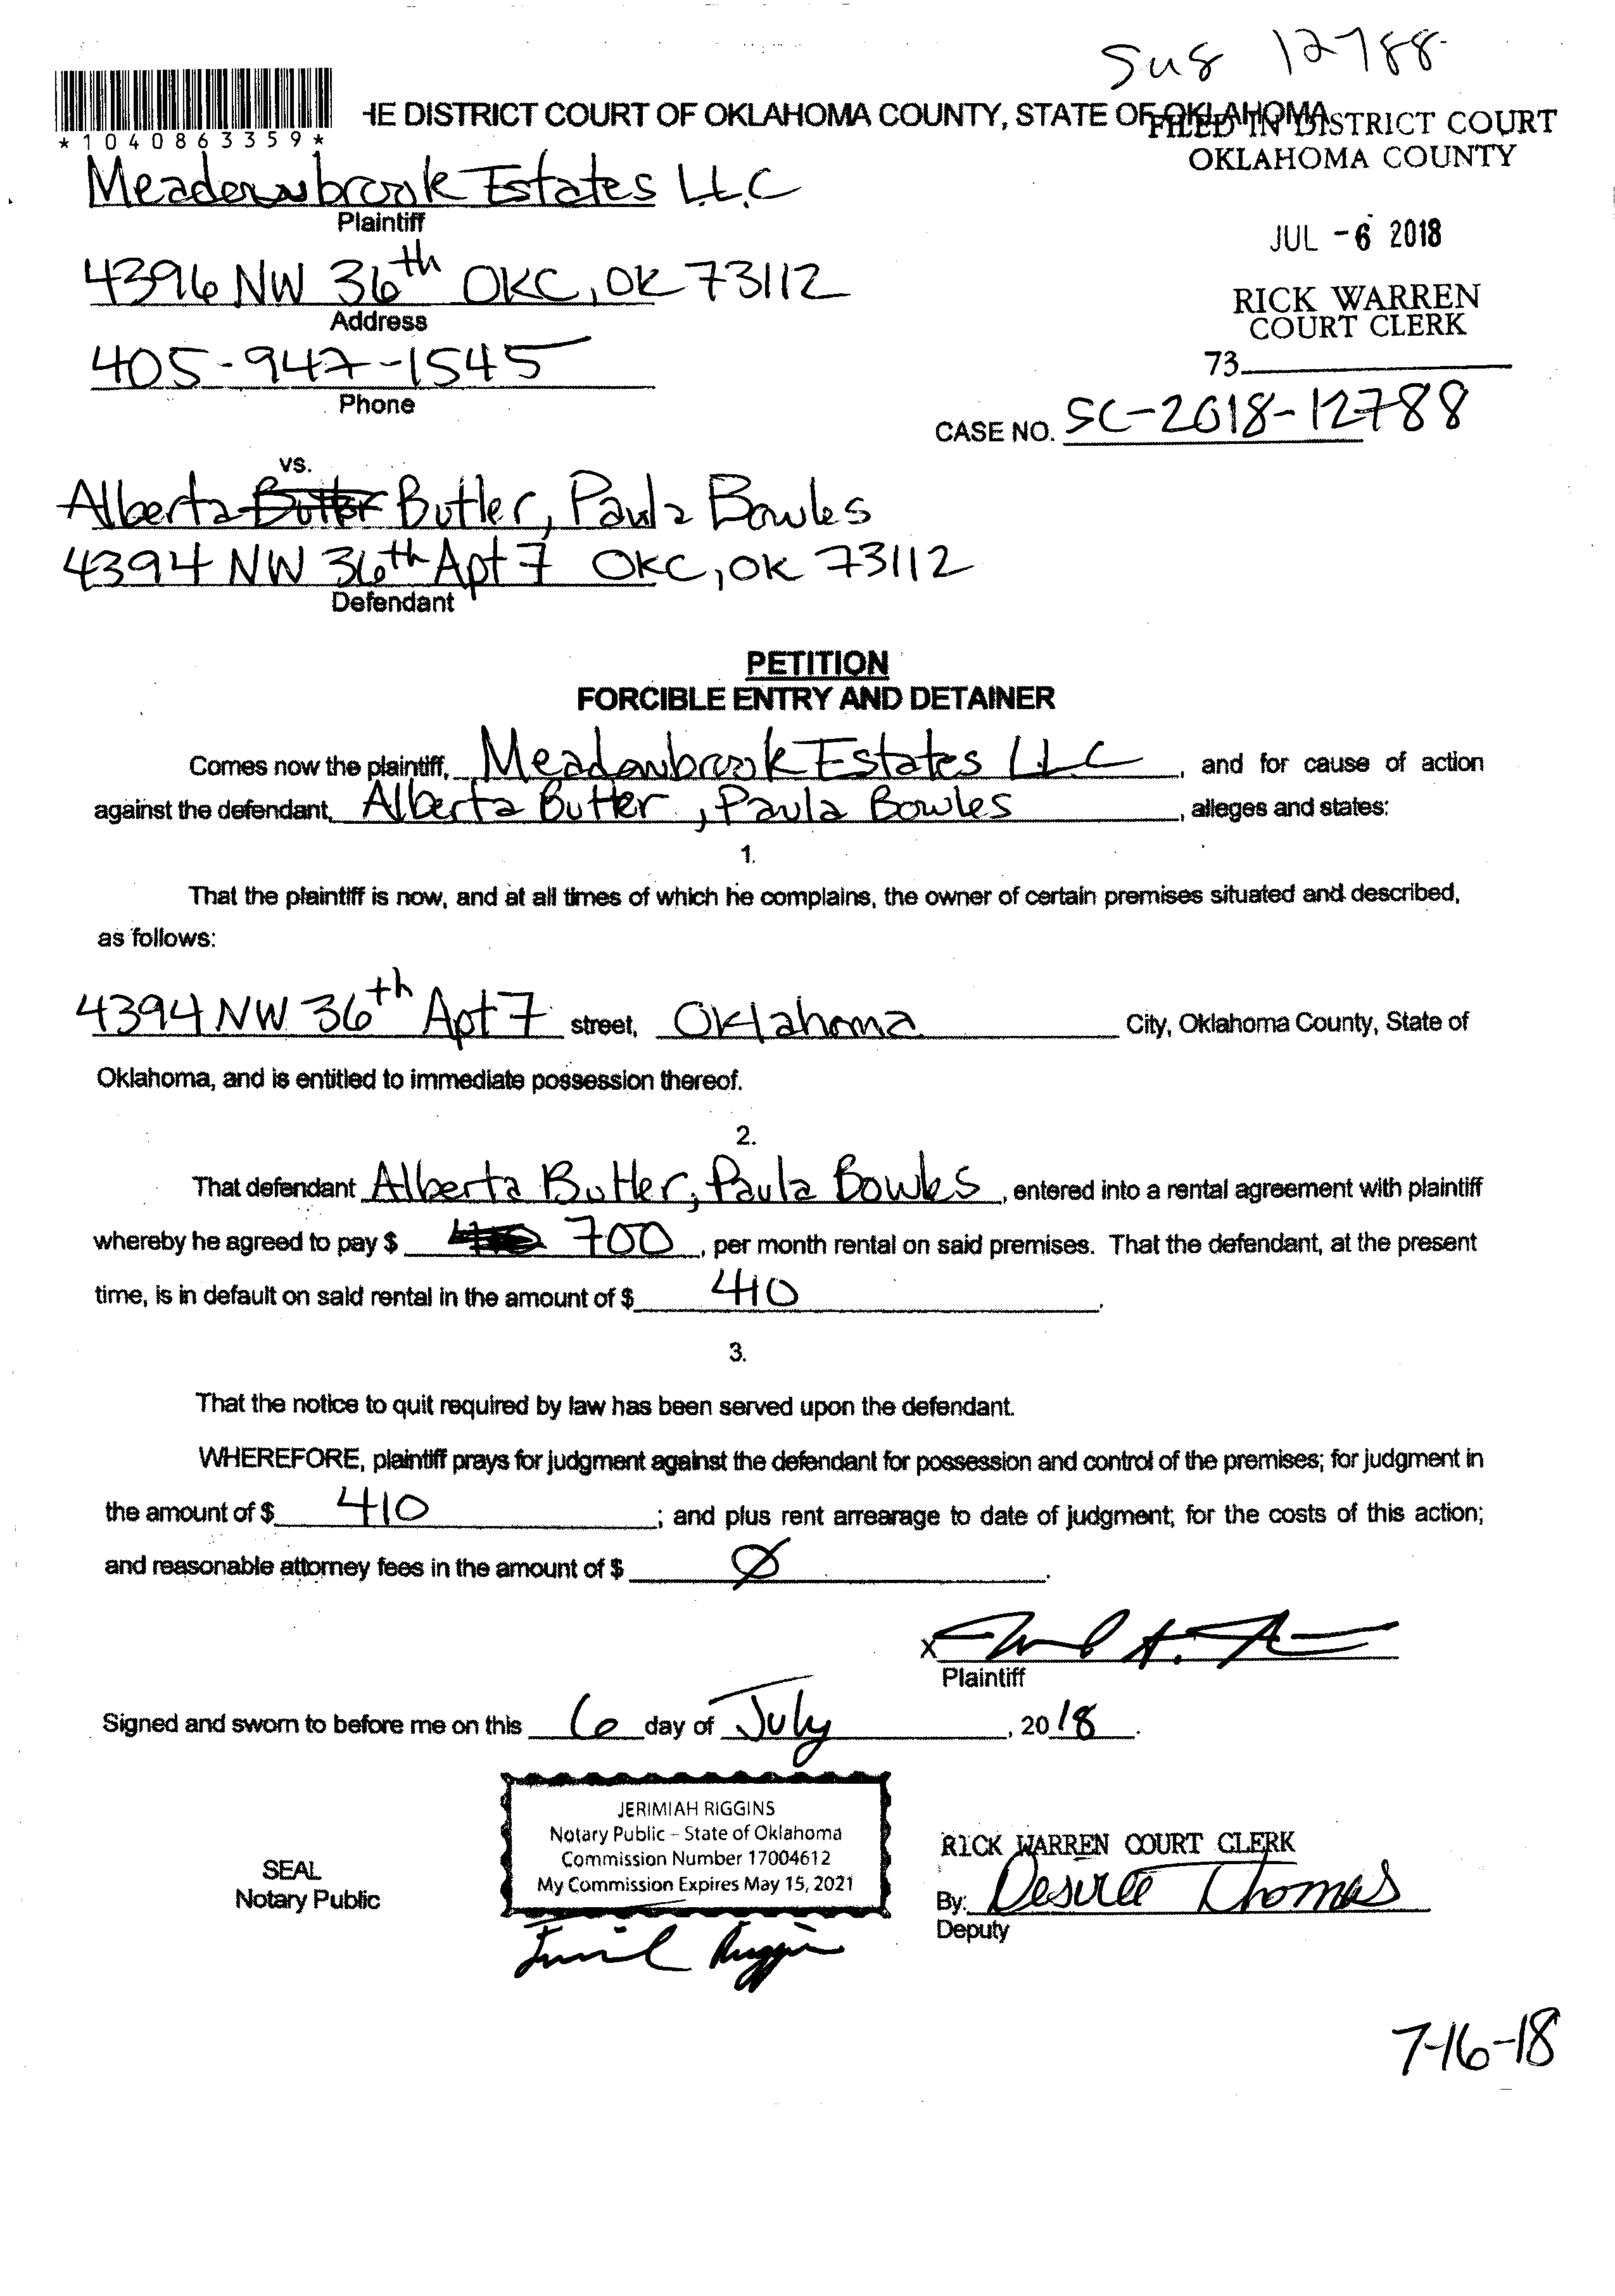 Sus 12788
HE DISTRICT COURT OF OKLAHOMA COUNTY, STATE OF OKLAHOMA
FILED IN DISTRICT COURT
OKLAHOMA COUNTY
*1040863359*
Meadowbrook Estates LLC
Plaintiff
JUL -6 2018
4396 NW 36th OKC, OK 73112
Address
RICK WARREN
COURT CLERK
405-947-1545
Phone
73
CASE NO. SC-2018-12788
VS.
Alberta Butler, Paula Bowles
4394 NW 36th Apt 7 OKC, OK 73112
Defendant
PETITION
FORCIBLE ENTRY AND DETAINER
Comes now the plaintiff, Meadowbrook Estates LLC, and for cause of action
against the defendant, Alberta Butler, Paula Bowles, alleges and states:
1.
That the plaintiff is now, and at all times of which he complains, the owner of certain premises situated and described,
as follows:
4394 NW 36th Apt 7 street, Oklahoma City, Oklahoma County, State of
Oklahoma, and is entitled to immediate possession thereof.
2.
That defendant Alberta Butler, Paula Bowles, entered into a rental agreement with plaintiff
whereby he agreed to pay $ 700, per month rental on said premises. That the defendant, at the present
time, is in default on said rental in the amount of $ 410.
3.
That the notice to quit required by law has been served upon the defendant.
WHEREFORE, plaintiff prays for judgment against the defendant for possession and control of the premises; for judgment in
the amount of $ 410; and plus rent arrearage to date of judgment; for the costs of this action;
and reasonable attorney fees in the amount of $ Ø.
X
Plaintiff
Signed and sworn to before me on this 6 day of July, 2018.
JERIMIAH RIGGINS
Notary Public – State of Oklahoma
Commission Number 17004612
My Commission Expires May 15, 2021
SEAL
Notary Public
RICK WARREN COURT CLERK
By: Desiree Thomas
Deputy
7-16-18